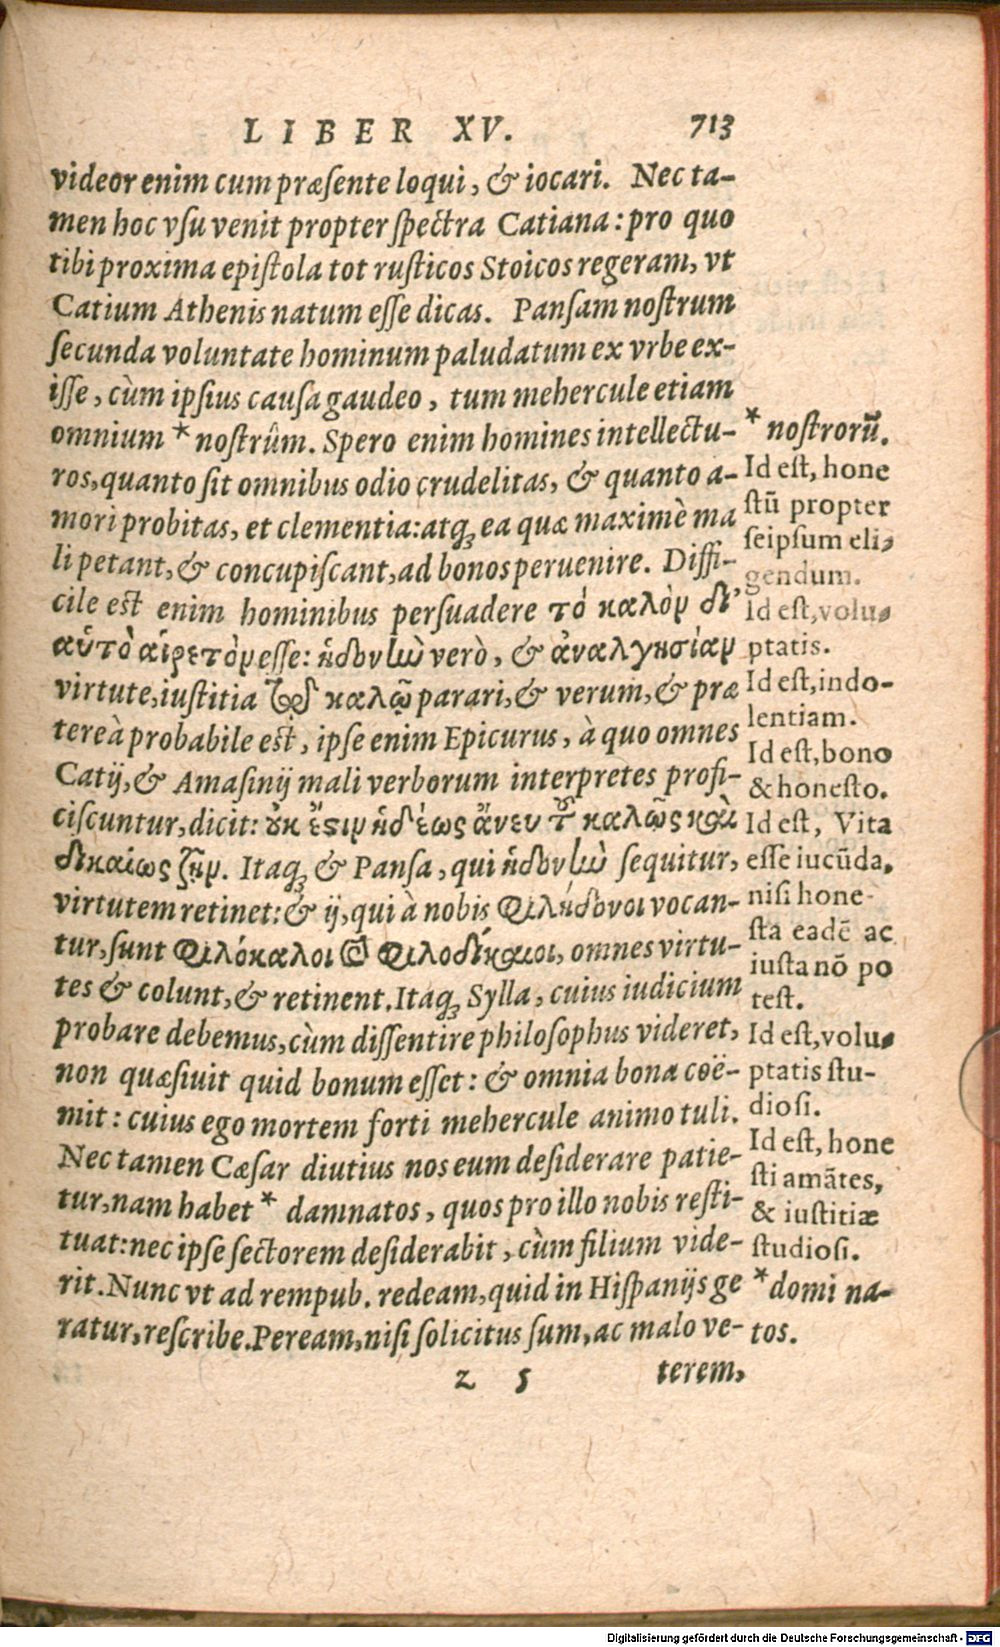 LIBER XV. 713
videor enim cum præsente loqui, & iocari. Nec ta-
men hoc vsu venit propter spectra Catiana: pro quo
tibi proxima epistola tot rusticos Stoicos regeram, vt
Catium Athenis natum esse dicas. Pansam nostrum
secunda voluntate hominum paludatum ex vrbe ex-
isse, cùm ipsius causa gaudeo, tum mehercule etiam
omnium * nostrûm. Spero enim homines intellectu-
ros, quanto sit omnibus odio crudelitas, & quanto a-
mori probitas, et clementia: atq; ea quæ maximè ma
li petant, & concupiscant, ad bonos peruenire. Diffi-
cile est enim hominibus persuadere τὸ καλὸν δι’
αὑτὸ αἱρετὸν esse: ἡδονὴν verò, & ἀναλγησίαν
virtute, iustitia τῷ καλῷ parari, & verum, & præ
tereà probabile est, ipse enim Epicurus, à quo omnes
Catij, & Amasinij mali verborum interpretes profi-
ciscuntur, dicit: οὐκ ἔστιν ἡδέως ἄνευ τοῦ καλῶς καὶ
δικαίως ζῆν. Itaq; & Pansa, qui ἡδονὴν sequitur,
virtutem retinet: & ij, qui à nobis φιλήδονοι vocan-
tur, sunt φιλόκαλοι καὶ φιλοδίκαιοι, omnes virtu-
tes & colunt, & retinent. Itaq; Sylla, cuius iudicium
probare debemus, cùm dissentire philosophus videret,
non quæsiuit quid bonum esset: & omnia bona coë-
mit: cuius ego mortem forti mehercule animo tuli.
Nec tamen Cæsar diutius nos eum desiderare patie-
tur, nam habet * damnatos, quos pro illo nobis resti-
tuat: nec ipse sectorem desiderabit, cùm filium vide-
rit. Nunc vt ad rempub. redeam, quid in Hispanijs ge
ratur, rescribe. Peream, nisi solicitus sum, ac malo ve-
z 5 terem,
* nostrorũ.
Id est, hone
stũ propter
seipsum eli-
gendum.
Id est, volu-
ptatis.
Id est, indo-
lentiam.
Id est, bono
& honesto.
Id est, Vita
esse iucũda,
nisi hone-
sta eadẽ ac
iusta nõ po
test.
Id est, volu-
ptatis stu-
diosi.
Id est, hone
sti amãtes,
& iustitiæ
studiosi.
* domi na-
tos.
Digitalisierung gefördert durch die Deutsche Forschungsgemeinschaft - DFG